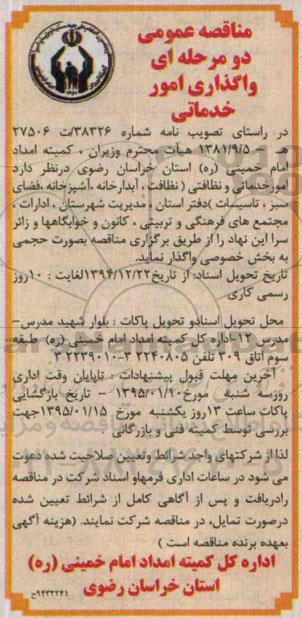 مناقصه عمومی
دو مرحله ای
واگذاری امور
خدماتی
در راستای تصویب نامه شماره ۳۸۳۲۶/ت ۲۷۵۰۶
هـ - ۱۳۸۱/۹/۵ هیأت محترم وزیران ، کمیته امداد
امام خمینی (ره) استان خراسان رضوی درنظر دارد
امورخدماتی و نظافتی ( نظافت ، آبدارخانه ،آشپزخانه ،فضای
سبز ، تاسیسات )دفتر استان ، مدیریت شهرستان ، ادارات ،
مجتمع های فرهنگی و تربیتی ، کانون و خوابگاهها و زائر
سرا این نهاد را از طریق برگزاری مناقصه بصورت حجمی
به بخش خصوصی واگذار نماید.
تاریخ تحویل اسناد: از تاریخ ۱۳۹۴/۱۲/۲۲لغایت : ۱۰روز
رسمی کاری.
محل تحویل اسنادو تحویل پاکات : بلوار شهید مدرس-
مدرس ۱۲-اداره کل کمیته امداد امام خمینی (ره) طبقه
سوم اتاق ۳۰۹ تلفن ۲۲۴۰۸۰۵ ۳-۲۲۳۹۰۱۰ ۳
آخرین مهلت قبول پیشنهادات : تاپایان وقت اداری
روزسه شنبه مورخ ۱۳۹۵/۰۱/۱۰ - تاریخ بازگشایی
پاکات ساعت ۱۳روز یکشنبه مورخ ۱۳۹۵/۰۱/۱۵جهت
بررسی توسط کمیته فنی و بازرگانی
لذا از شرکتهای واجد شرائط وتعیین صلاحیت شده دعوت
می شود در ساعات اداری فرمهاو اسناد شرکت در مناقصه
رادریافت و پس از آگاهی کامل از شرائط تعیین شده
درصورت تمایل، در مناقصه شرکت نمایند. (هزینه آگهی
بعهده برنده مناقصه است )
اداره کل کمیته امداد امام خمینی (ره)
استان خراسان رضوی
۹۴۳۲۲۴۱ح